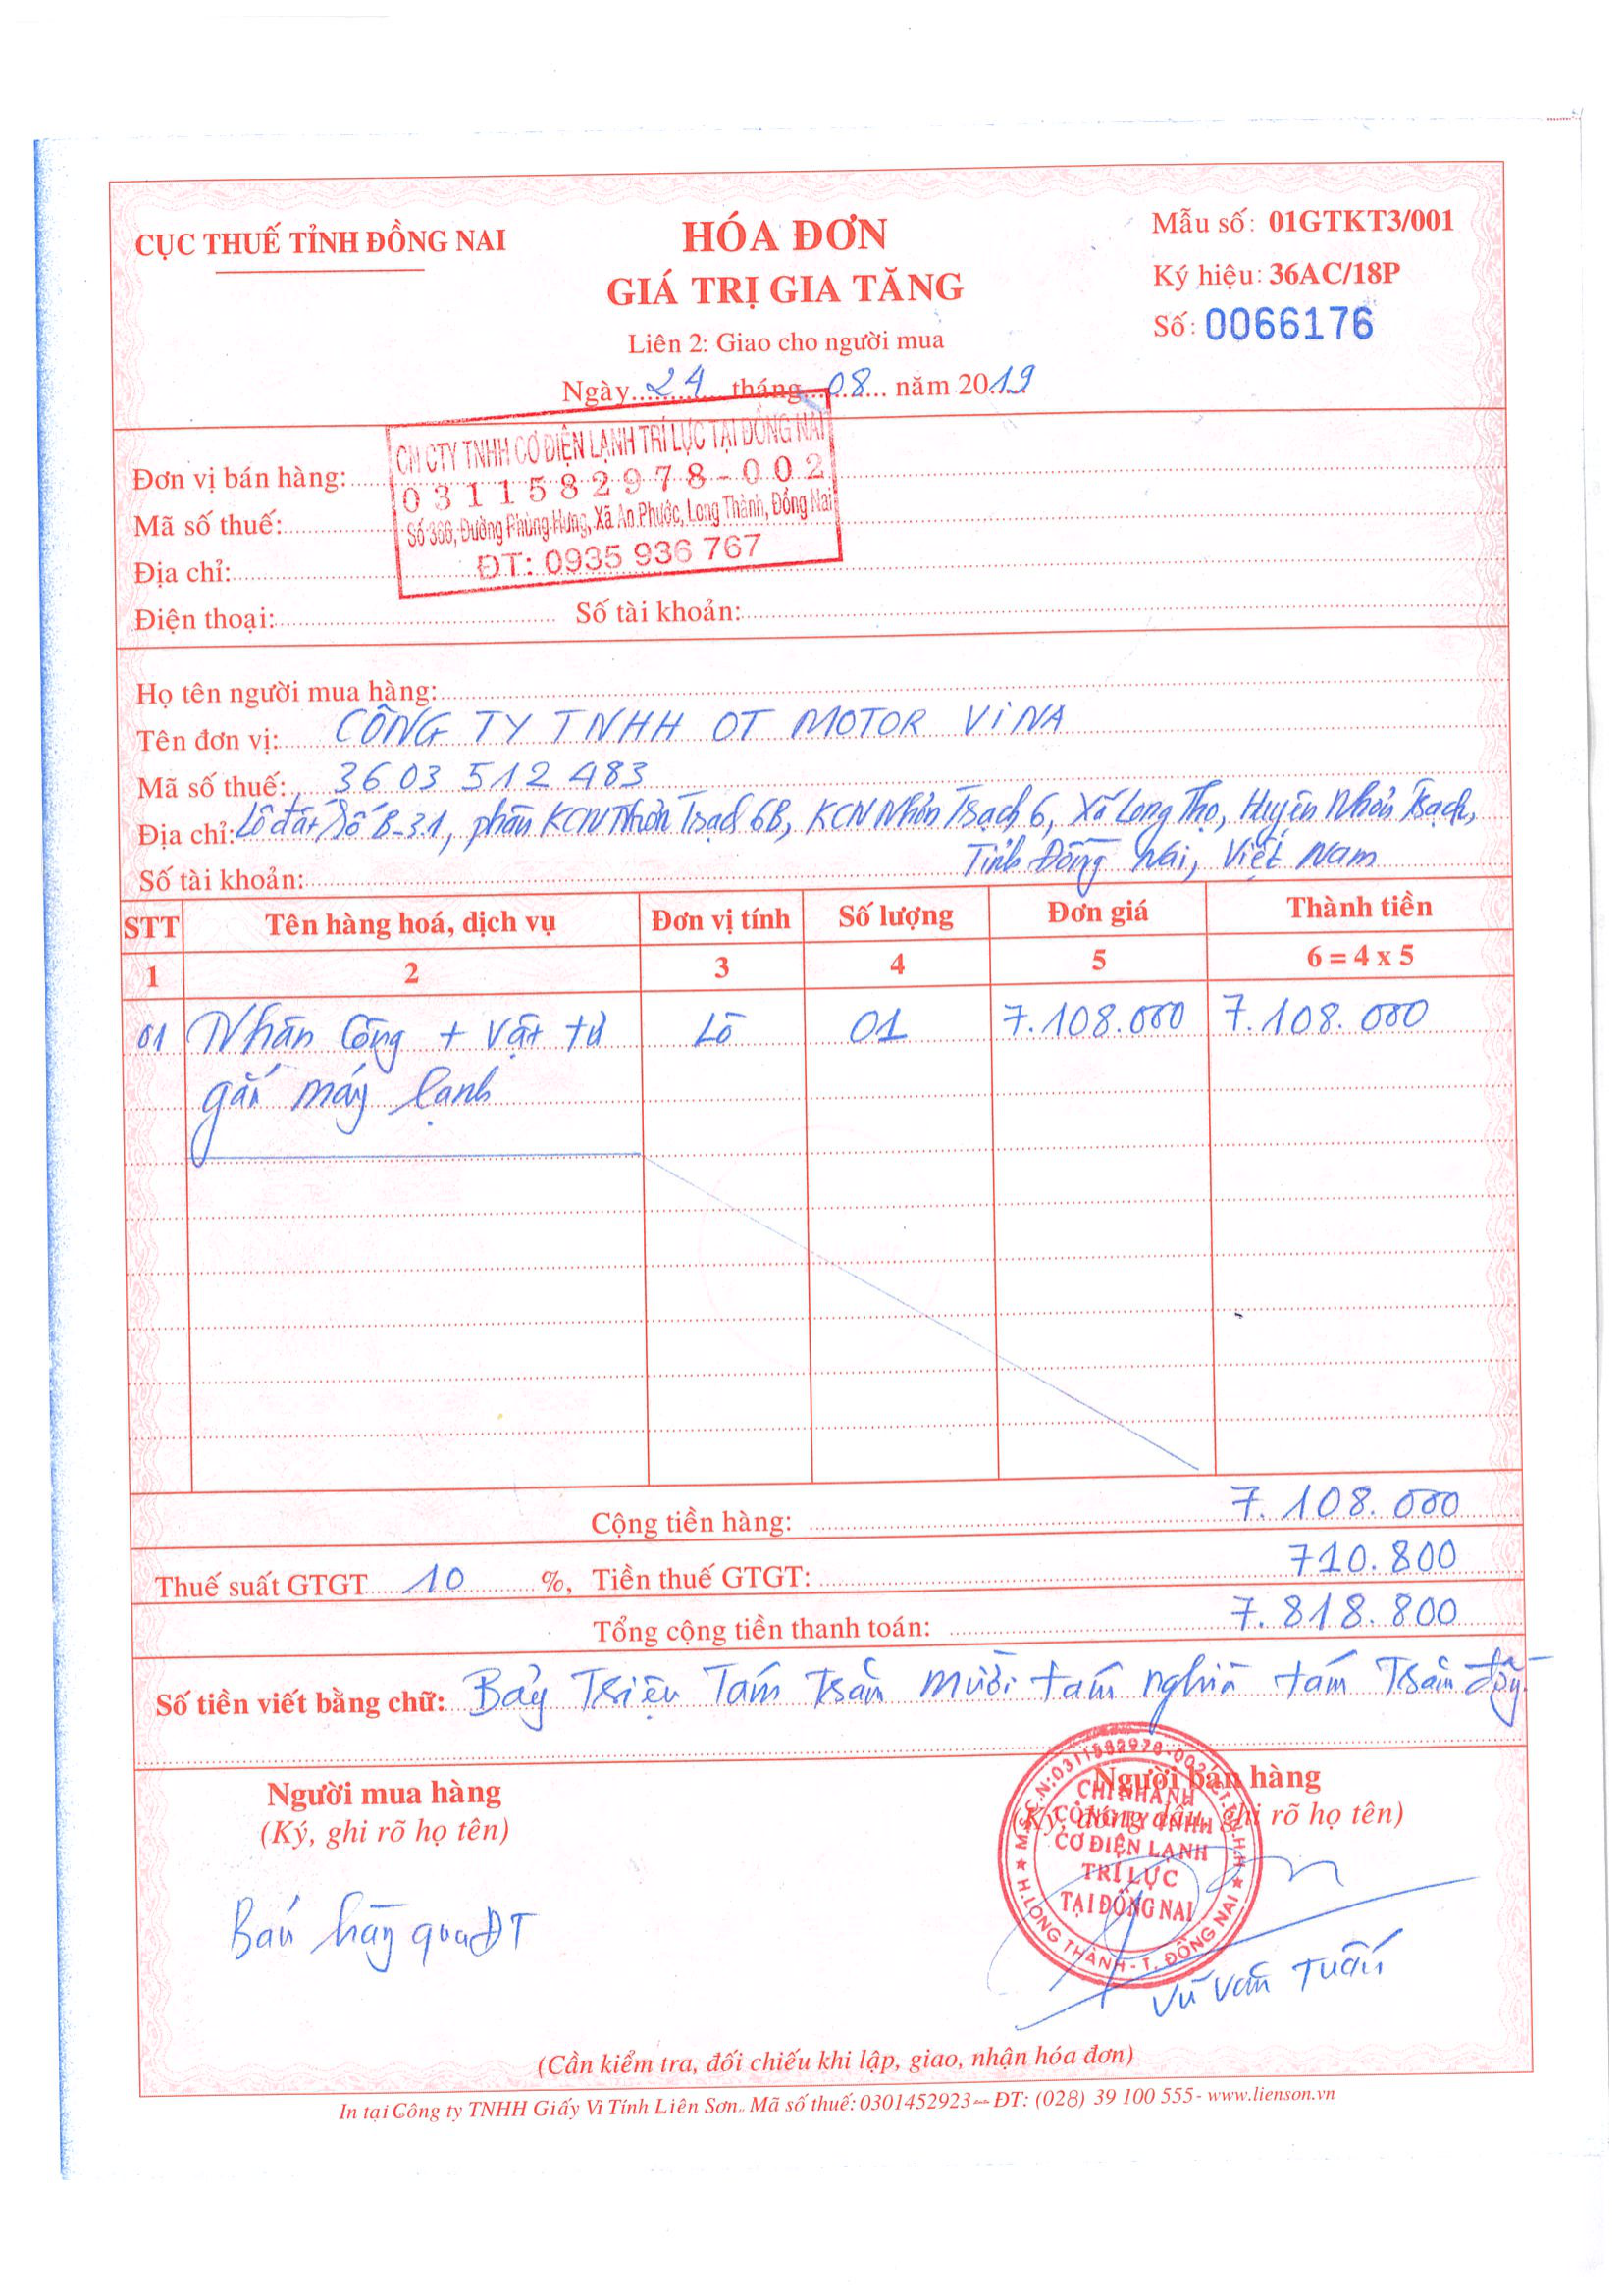 CỤC THUẾ TỈNH ĐỒNG NAI
HÓA ĐƠN
GIÁ TRỊ GIA TĂNG
Liên 2: Giao cho người mua
Ngày 24 tháng 08 năm 2019
Mẫu số: 01GTKT3/001
Ký hiệu: 36AC/18P
Số: 0066176
CN CTY TNHH CƠ ĐIỆN LẠNH TRÍ LỰC TẠI ĐỒNG NAI
0311582978-002
Số 366, Đường Phùng Hưng, Xã An Phước, Long Thành, Đồng Nai
ĐT: 0935 936 767
Đơn vị bán hàng:
Mã số thuế:
Địa chỉ:
Điện thoại: Số tài khoản:
Họ tên người mua hàng:
Tên đơn vị: CÔNG TY TNHH OT MOTOR ViNA
Mã số thuế: 3603512483
Địa chỉ: Lô đất số B-31, phân KCN Nhơn Trạch 6B, KCN Nhơn Trạch 6, Xã Long Thọ, Huyện Nhơn Trạch,
Tỉnh Đồng Nai, Việt Nam
Số tài khoản:
STT Tên hàng hoá, dịch vụ Đơn vị tính Số lượng Đơn giá Thành tiền
1 2 3 4 5 6 = 4 x 5
01 Nhân Công + Vật tư Lô 01 7.108.000 7.108.000
gắn máy lạnh
Cộng tiền hàng: 7.108.000
Thuế suất GTGT 10 %, Tiền thuế GTGT: 710.800
Tổng cộng tiền thanh toán: 7.818.800
Số tiền viết bằng chữ: Bảy Triệu Tám trăm mười tám nghìn tám Trăm đồng
Người mua hàng
(Ký, ghi rõ họ tên)
Bán hàng qua ĐT
Người bán hàng
(Ký, đóng dấu, ghi rõ họ tên)
M.S.C.N:0311582978-002-C.T.T.N.H.H
CHI NHÁNH
CÔNG TY TNHH
CƠ ĐIỆN LẠNH
TRÍ LỰC
TẠI ĐỒNG NAI
H.LONG THÀNH - T. ĐỒNG NAI
Vũ Văn Tuấn
(Cần kiểm tra, đối chiếu khi lập, giao, nhận hóa đơn)
In tại Công ty TNHH Giấy Vi Tính Liên Sơn. Mã số thuế: 0301452923 - ĐT: (028) 39 100 555 - www.lienson.vn